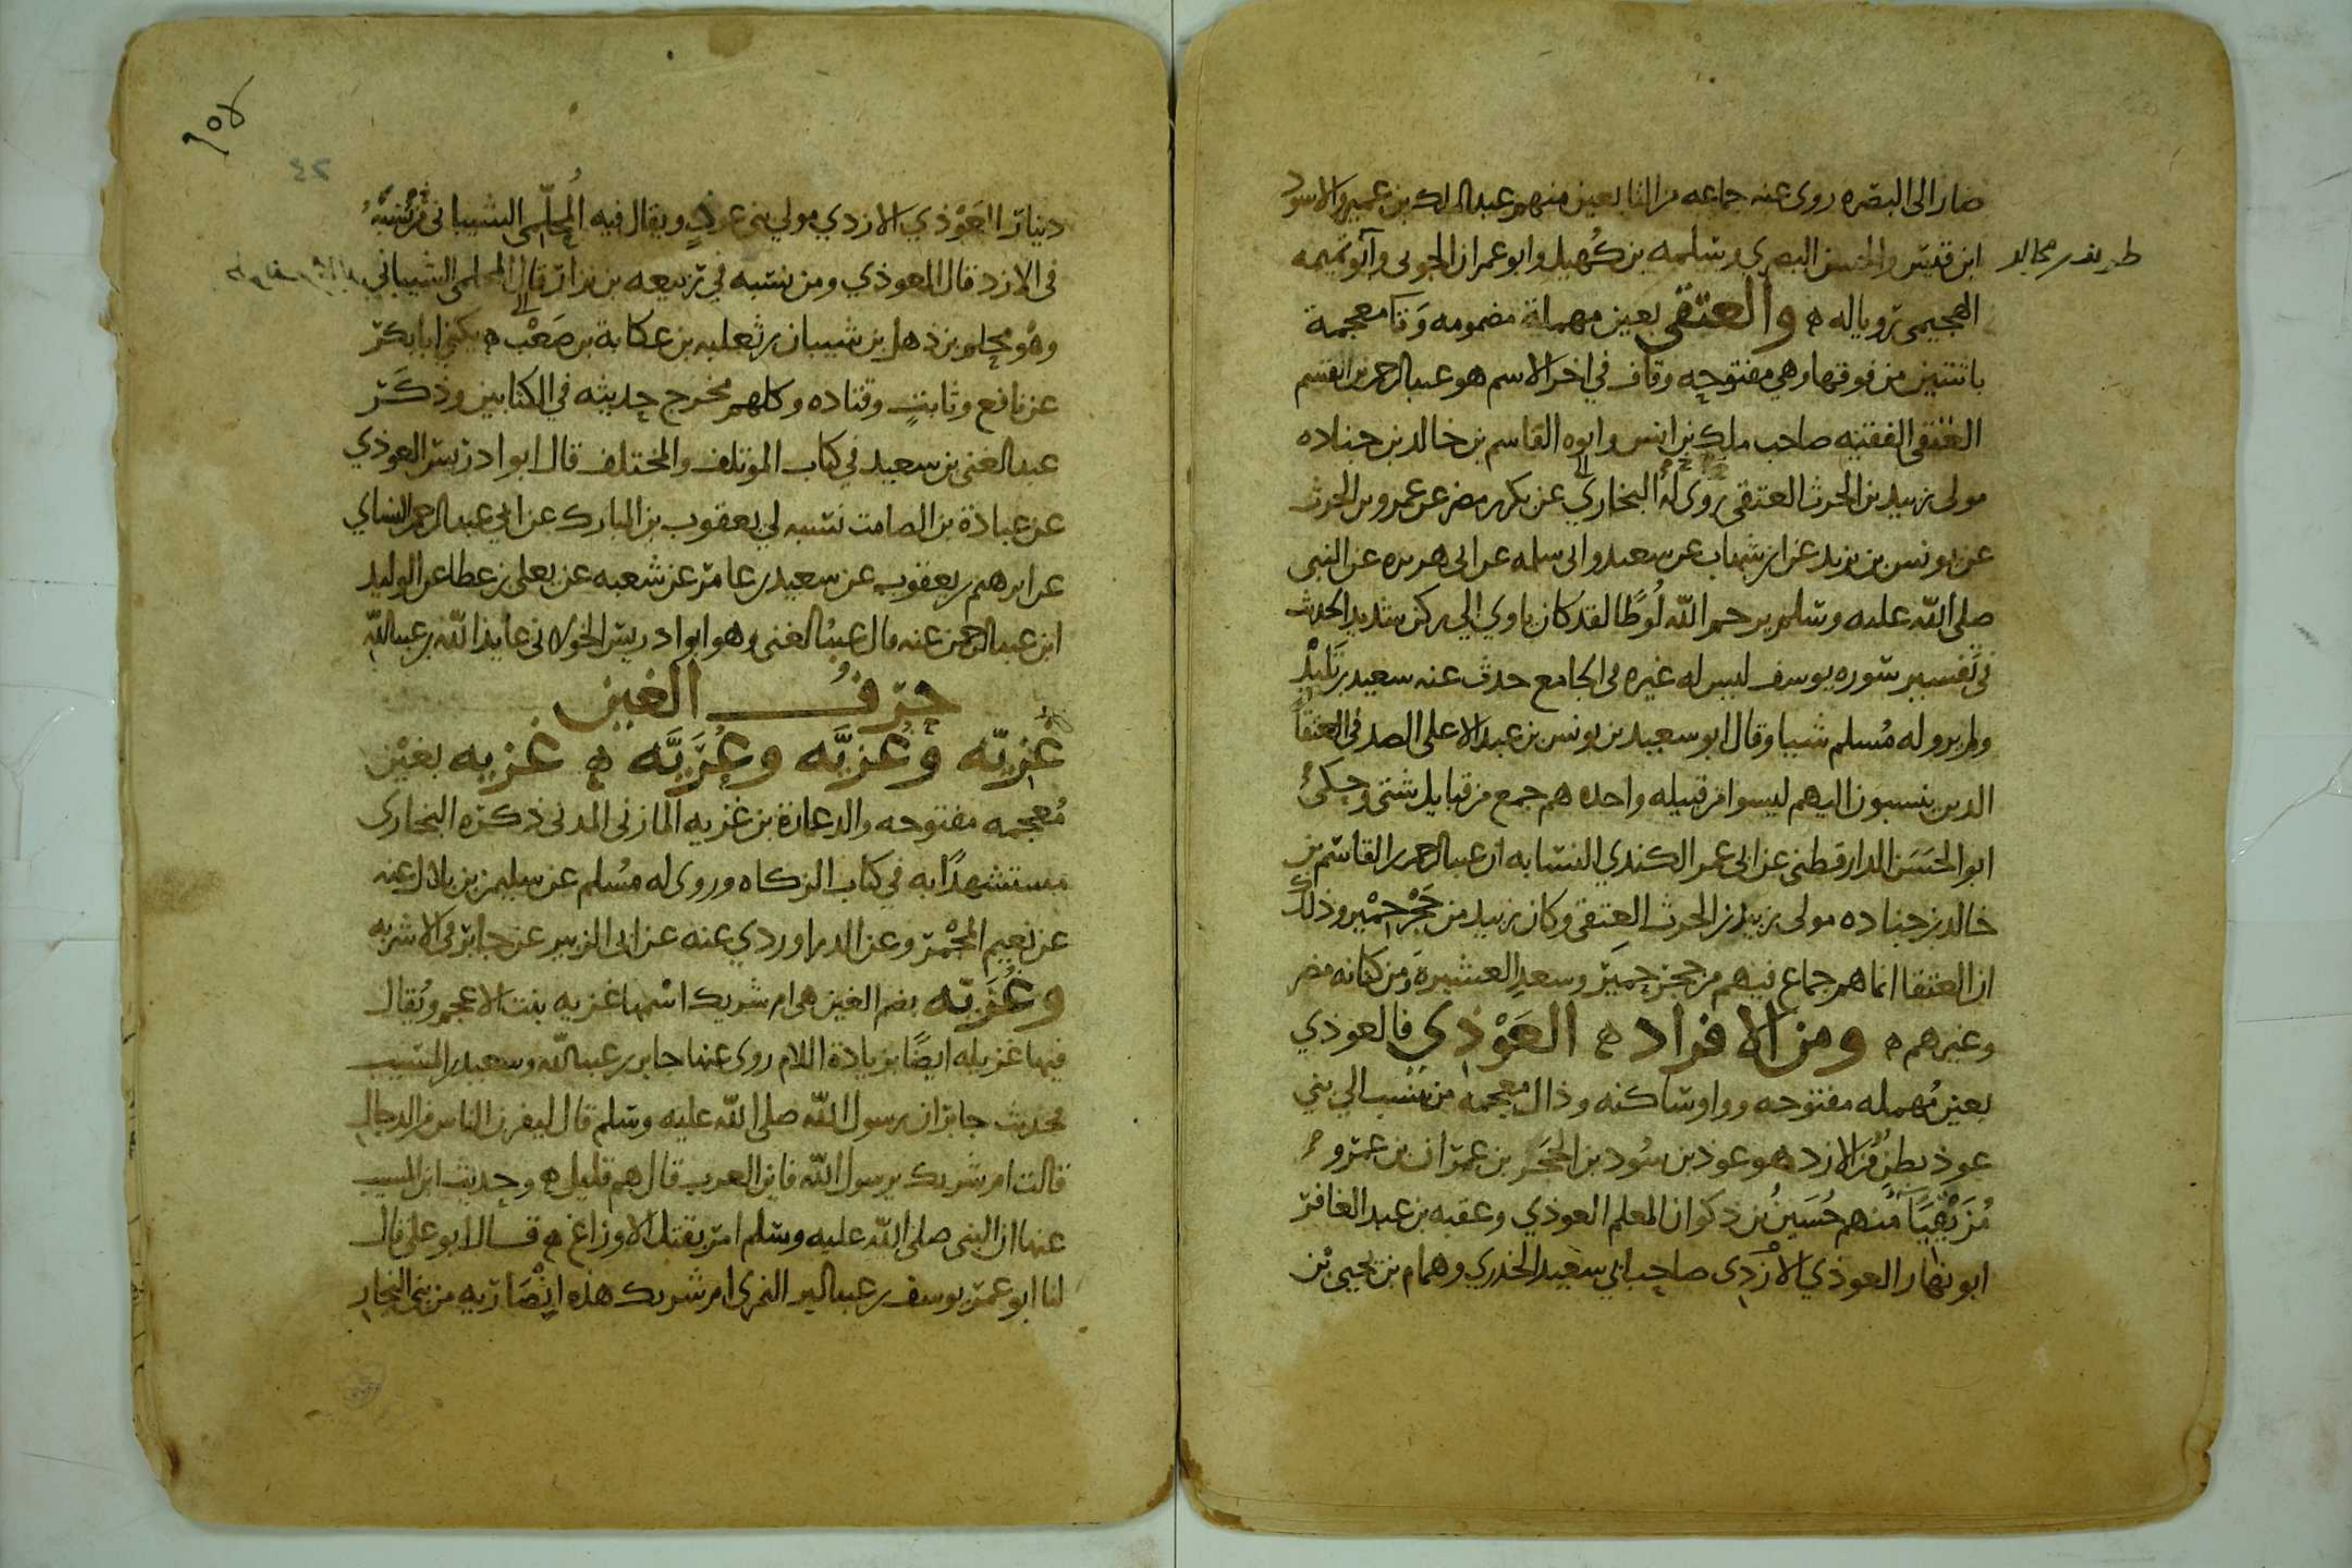 صار الى البصره روى عنه جماعه من التابعين منهم عبد الملك بن عمير والاسود
ابن قيس والحسن البصرى وسلمه بن كُهيل وابو عمران الجونى وابو تميمه
طريف بن مجالد
الهجيمى رويا له ه والعتقى بعين مهملة مضمومه وَتا معجمة
باثنتين من فوقها وهي مفتوحه وقاف في اخر الاسم هو عبد الرحمن بن القسم
العتقى الفقيه صاحب ملك بن انس وابوه القاسم بن خالد بن جناده
مولى زبيد بن الحرث العتقى روى لهُ البخاري عن بكر بن مضر عن عمرو بن الحرث
عن يونس بن يزيد عن ابن شهاب عن سعيد وابى سلمه عن ابى هريره عن النبى
صلى الله عليه وسلم يرحم الله لُوطًا لقد كان ياوي الي ركن شديد الحديث
في تفسير سوره يوسف ليس له غيره فى الجامع حدث عنه سعيد بن تَلِيْد
ولم يرو له مُسلم شيا وقال ابو سعيد بن يونس بن عبد الاعلى الصدفى العتقا
الذين ينسبون اليهم ليسوا من قبيله واحده هم جمع من قبايل شتى وحكى
ابو الحَسَن الدارقطنى عن ابى عمر الكندي النسابه ان عبد الرحمن بن القاسم بن
خالد بن جناده مولى زبيد بن الحرث العتقى وكان زبيد من حَجْر حِمْير وذلك
ان العتقا انما هم جماع فيهم من حجر حِميَر وسعدِ العشيرةَ ومن كنانه مضر
وغيرهم ه ومن الافراد ه العَوْذِي فالعوذي
بعين مُهمله مفتوحه وواو ساكنه وذال معجمه من ينسب الي بني
عوذ بطنٌ من الازد هو عوذ بن سُود بن الحَجَر بن عمرَان بن عمرو
مُزَيْقِيَا منهم حُسَينُ بن ذكوان المعلم العوذي وعقبه بن عبد الغافر
ابو نهار العوذي الازدى صاحب ابي سعيد الخدري وهمام بن يحيى بْن
٤٢
دينار العَوْذي الازدي مولي بنى عوذٍ ويقال فيه المُحلّمى الشيبانى
فى الازد قال العوذي ومن نسبه في ربيعه بن نزار قال المحلمى الشيباني
وهو محلم بن ذهل بن شيبان بن ثعلبه بن عكابة بن صَعْب ه يكنى ابا بكر
عن نافع وثابتٍ وقتاده وكلهم مخرج حديثه في الكتابين وذكَر
عبد الغنى بن سعيد في كتاب المؤتلف والمختلف قال ابو ادريس العوذي
عن عبادة بن الصامت نسبه لي يعقوب بن المبارك عن ابي عبد الرحمن النساي
عن ابرهيم بن يعقوب عن سعيد بن عامر عن شعبه عن يعلى بن عطا عن الوليد
ابن عبد الرحمن عنه قال عبدُ الغنى وهو ابو ادريس الخولانى عايذ الله بن عبد الله
حرفُ الغين
غَزِيّه وَعُزيَّه وعُزَيَّه ه غزيه بغيْن
مُعجمه مفتوحه والد عمارة بن غزيه المازنى المدنى ذكره البخارى
مستشهدًا به في كتاب الزكاه وروى له مسُلم عن سليمن بن بلال عنه
عن نعيم المجْمر وعن الدراوردي عنه عن ابى الزبير عن جابر فى الاشربه
وغُزَيّه بضم الغين هى ام شريك اسْمها غزيه بنت الاعجم ويُقال
فيها غزيله ايضًا بزيادة اللام روى عنها جابر بن عبد الله وسعيد بن المسيب
فحديث جابر ان رسول الله صلى الله عليه وسلم قال ليفرن الناس من الدجال
قالت ام شريك يرسول الله فاين العرب قال هم قليل ه وحديث ابن المسيب
عنها ان النبى صلى الله عليه وسلم امر بقتل الاوزاغ ه قال ابو على قال
لنا ابو عمر يوسف بن عبد البر النمرى ام شريك هذه ايْضَا من بنى النجار